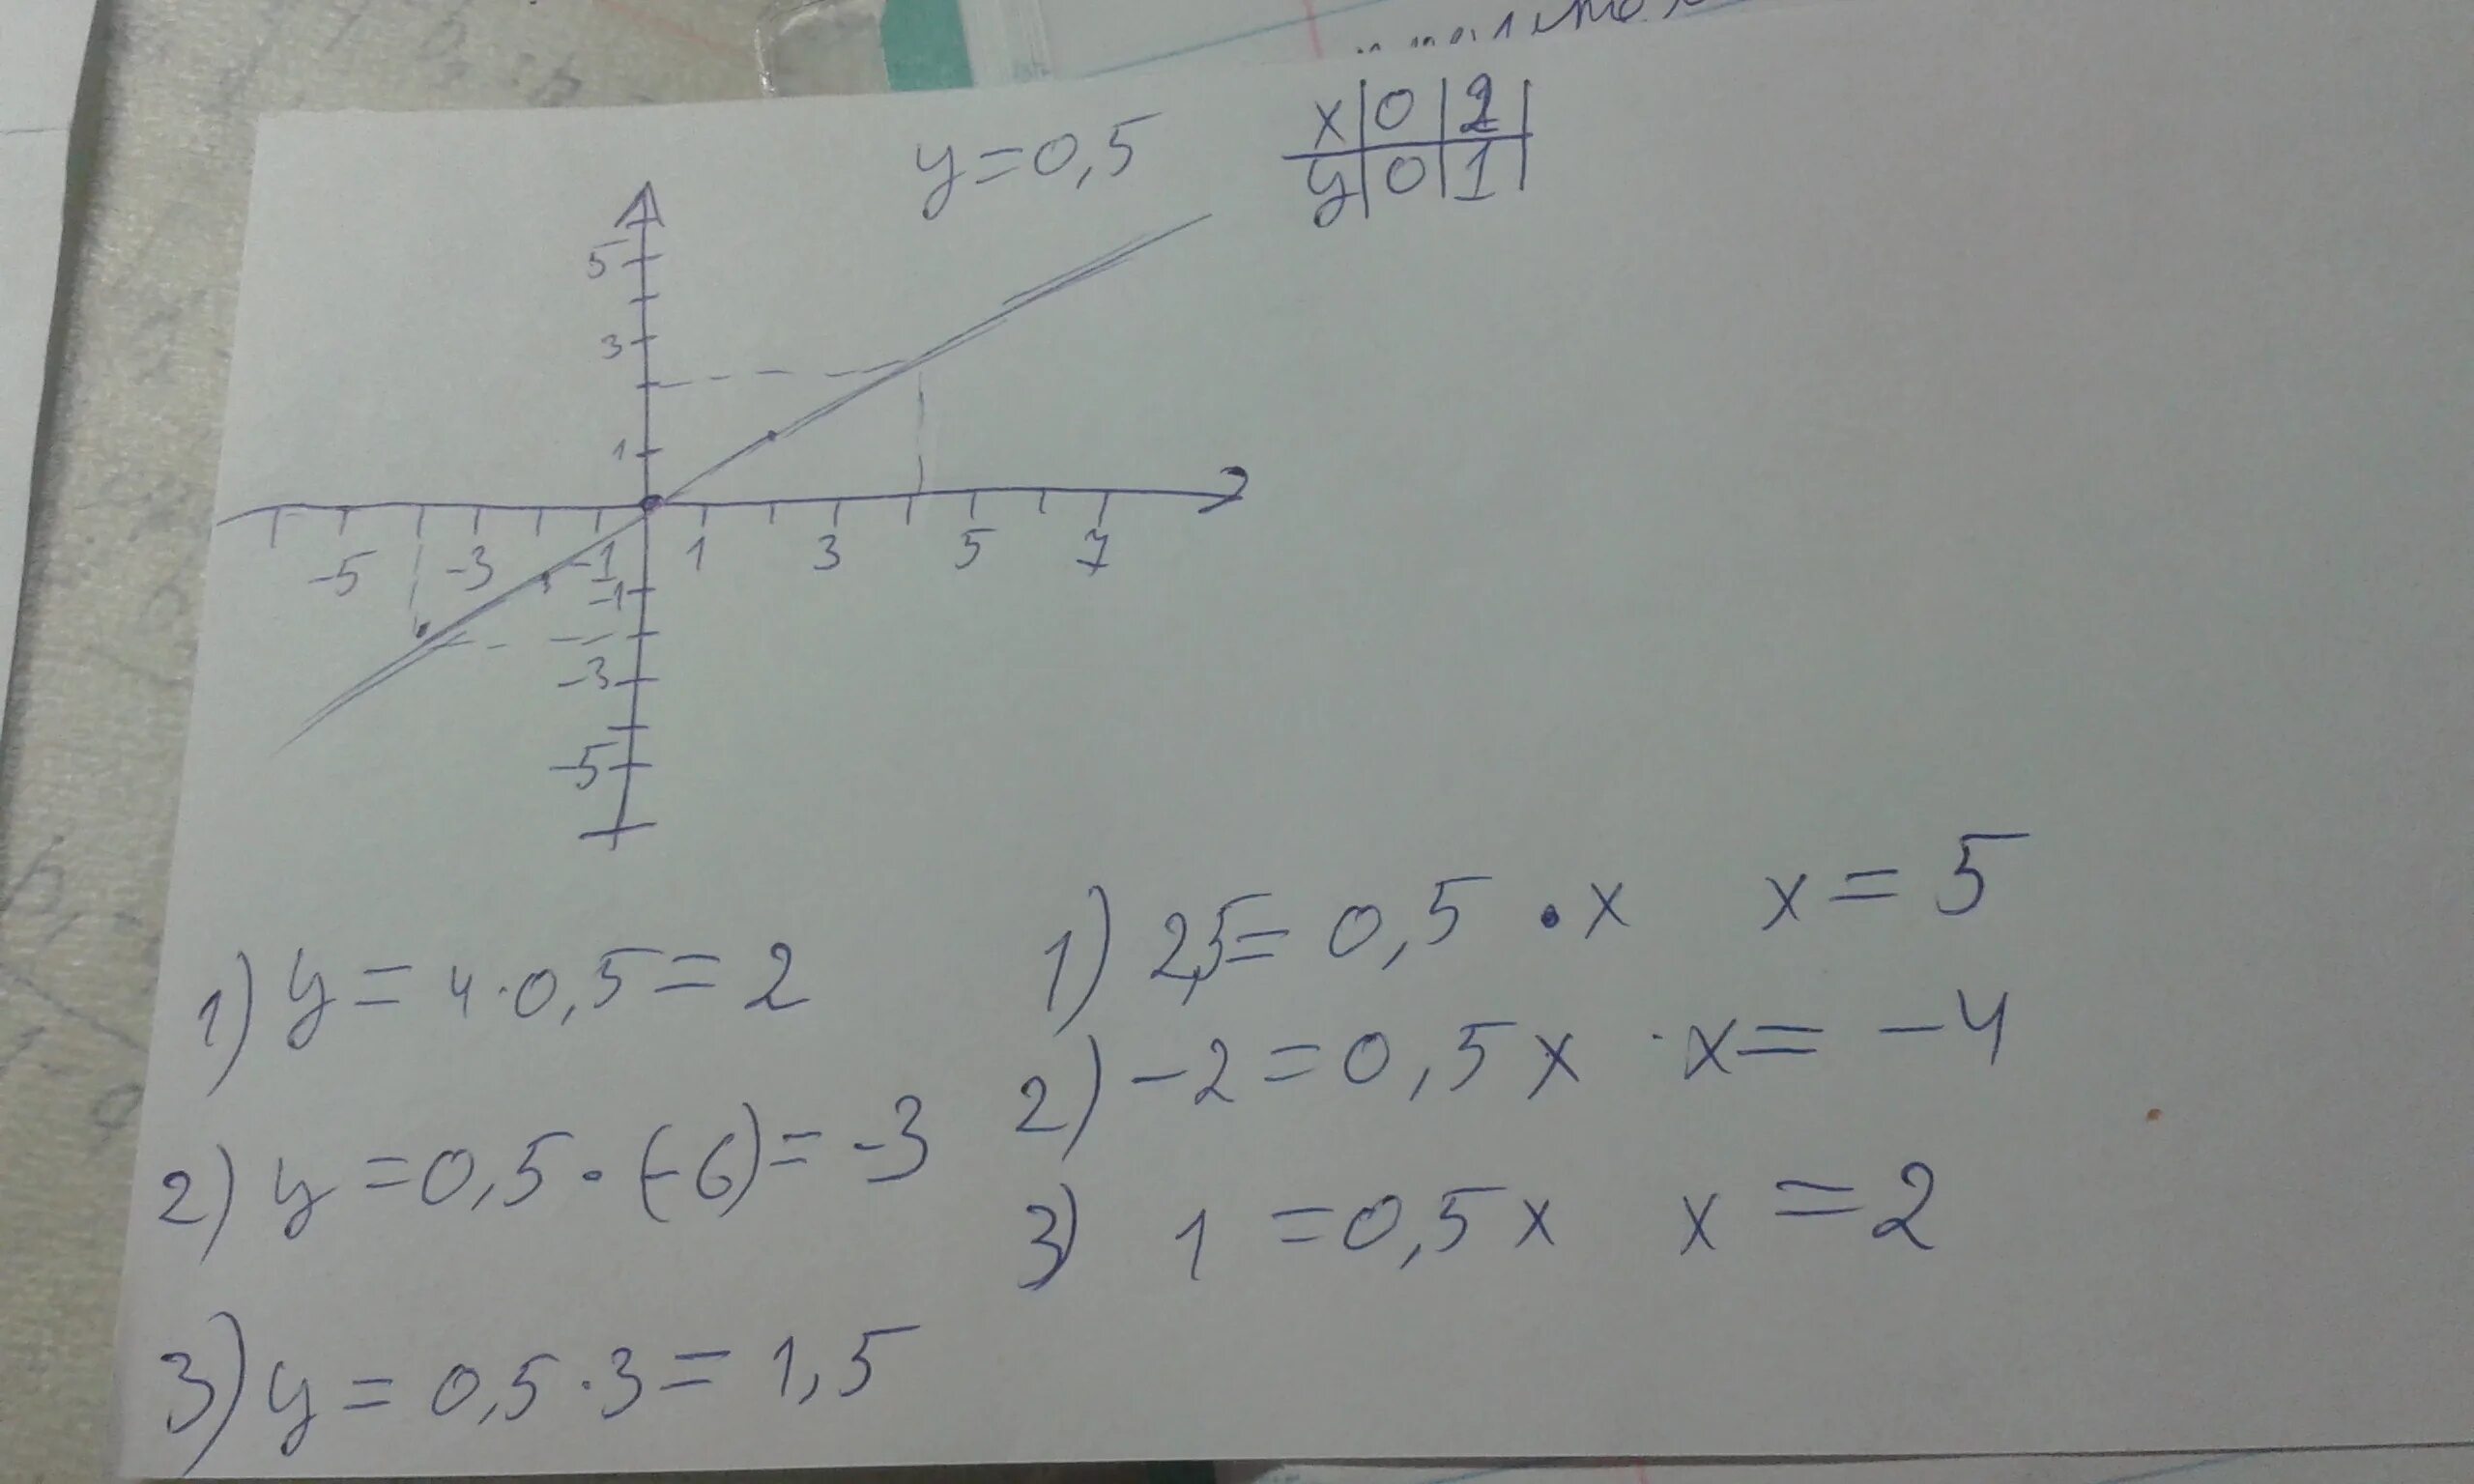 y=0,5
x|0|2|
y|0|1|
5
3
1
-5 -3 -1 1 3 5 7
-1
-3
-5
1) y = 4·0,5 = 2
2) y = 0,5·(-6) = -3
3) y = 0,5·3 = 1,5
1) 2,5 = 0,5·x x = 5
2) -2 = 0,5x x = -4
3) 1 = 0,5x x = 2